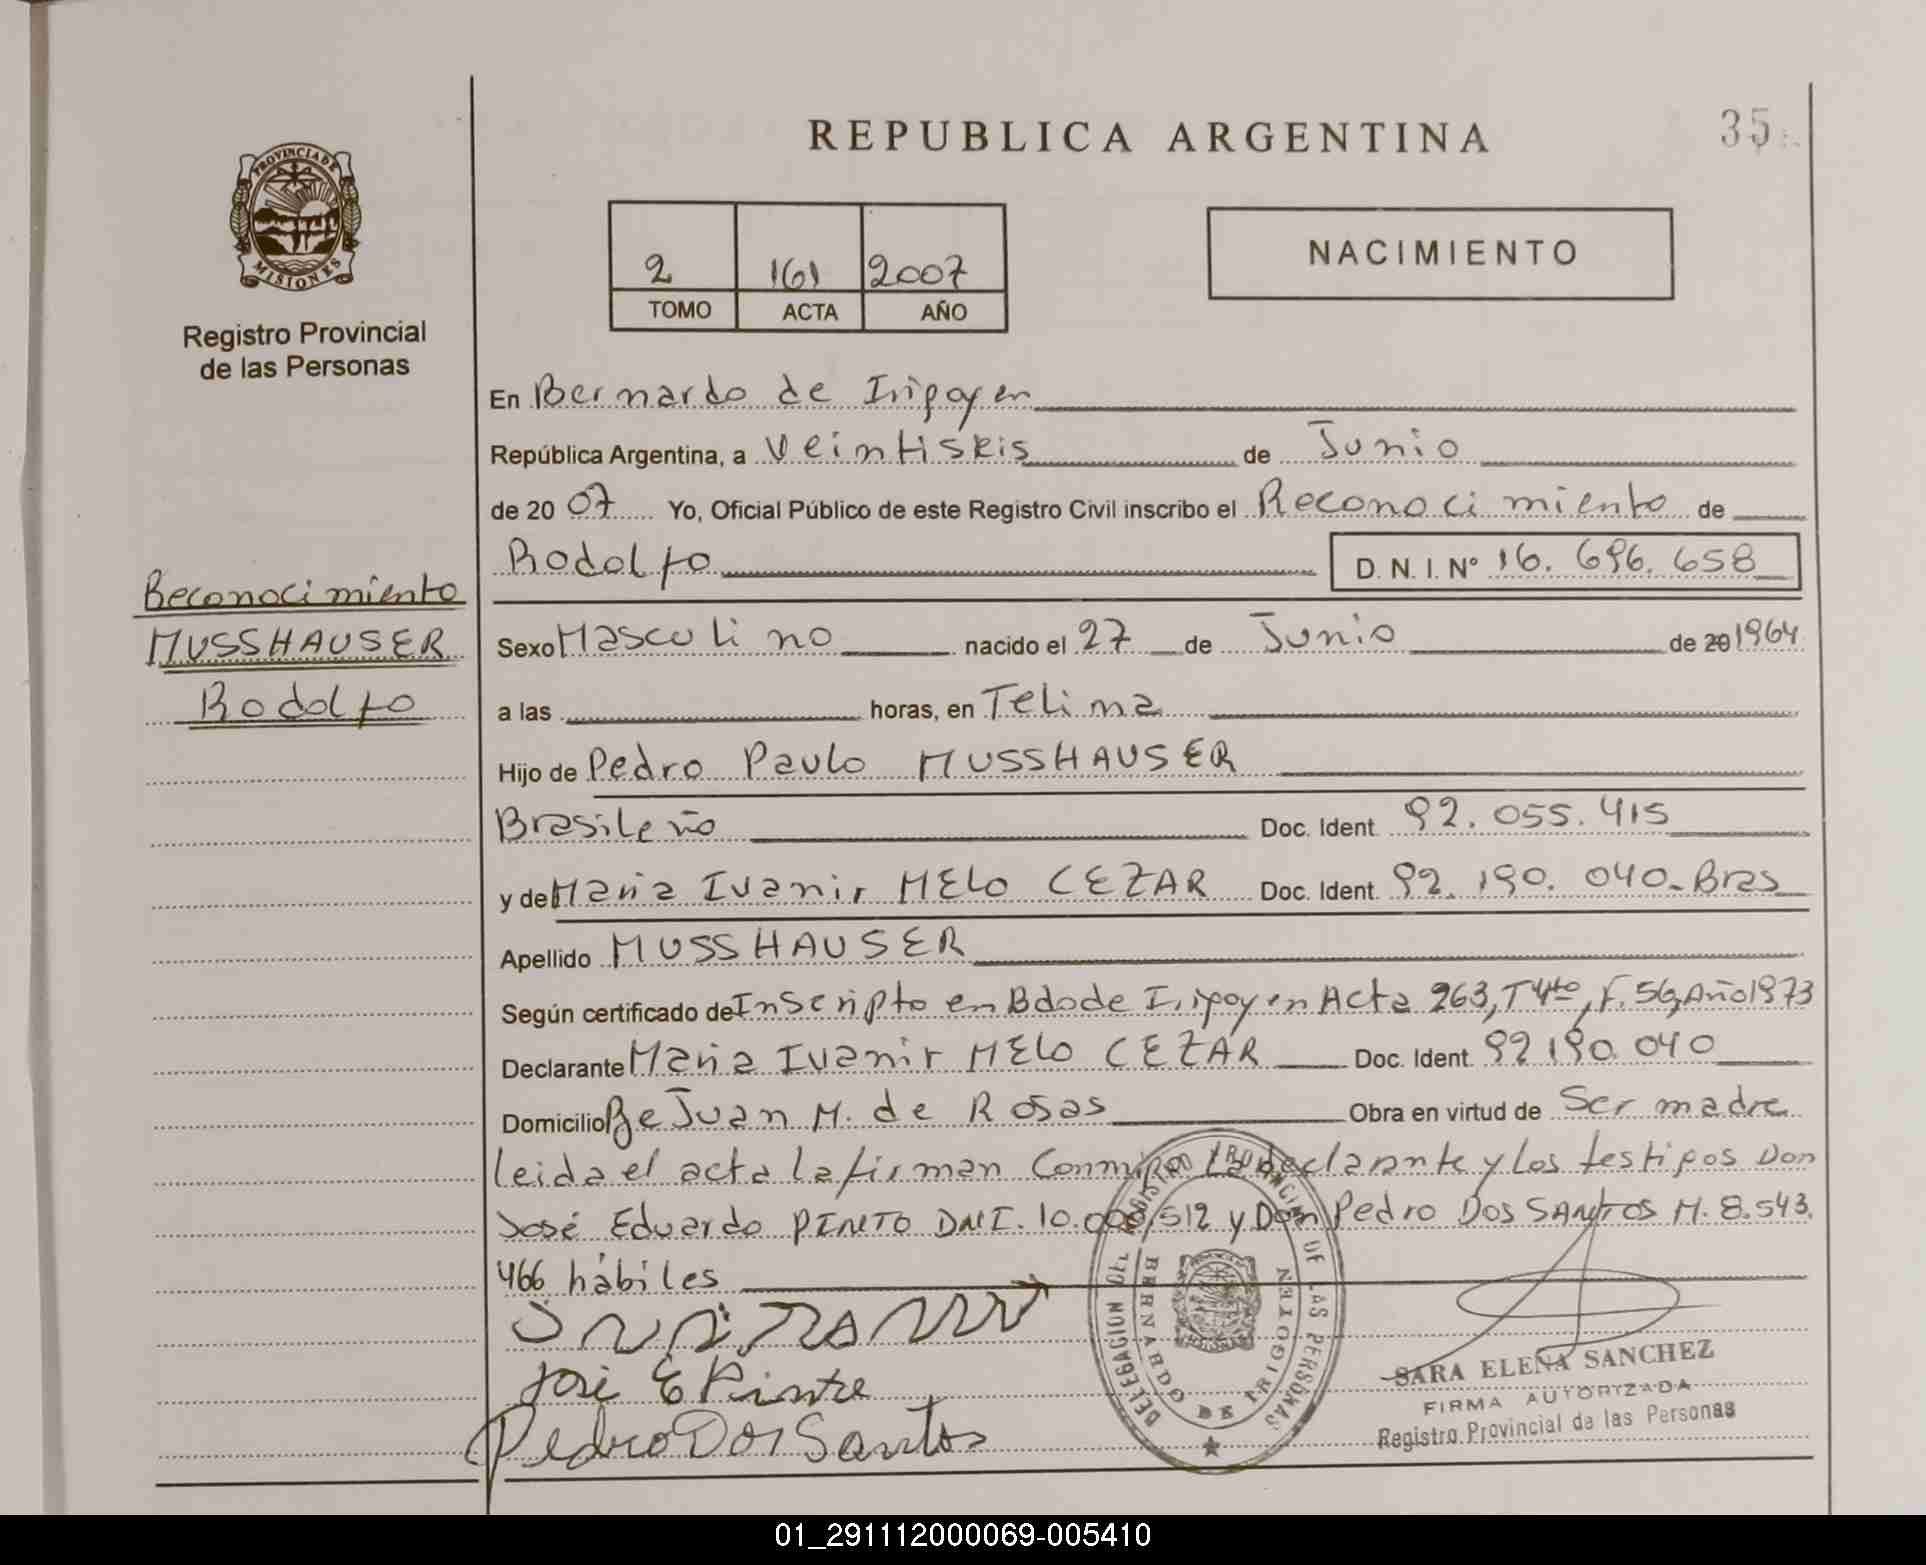 REPUBLICA ARGENTINA
35
PROVINCIA DE
MISIONES
Registro Provincial
de las Personas
2 161 2007
TOMO ACTA AÑO
NACIMIENTO
En Bernardo de Irigoyen
República Argentina, a Veintiseis de Junio
de 2007 Yo, Oficial Público de este Registro Civil inscribo el Reconocimiento de
Rodolfo D. N. I. Nº 16. 696. 658
Reconocimiento
MUSSHAUSER
Rodolfo
Sexo Masculino nacido el 27 de Junio de 20 1964
a las horas, en Telima
Hijo de Pedro Paulo MUSSHAUSER
Brasileño Doc. Ident. 92. 055. 415
y de Maria Ivanir MELO CEZAR Doc. Ident. 92. 190. 040- Bras
Apellido MUSSHAUSER
Según certificado de Inscripto en Bdo de Irigoyen Acta 263, T 4to, F. 56, Año 1973
Declarante Maria Ivanir MELO CEZAR Doc. Ident. 92 190 040
Domicilio Be Juan M. de Rosas Obra en virtud de Ser madre
leida el acta la firman Conmigo la declarante y los testigos Don
José Eduardo PINTO DNI. 10. 512 y Don Pedro Dos SANTOS M. 8.543.
466 hábiles
José E Pinto
Pedro Dos Santos
DELEGACION DEL REGISTRO PROVINCIAL DE LAS PERSONAS
BERNARDO DE IRIGOYEN
SARA ELENA SANCHEZ
FIRMA AUTORIZADA
Registro Provincial de las Personas
01_291112000069-005410